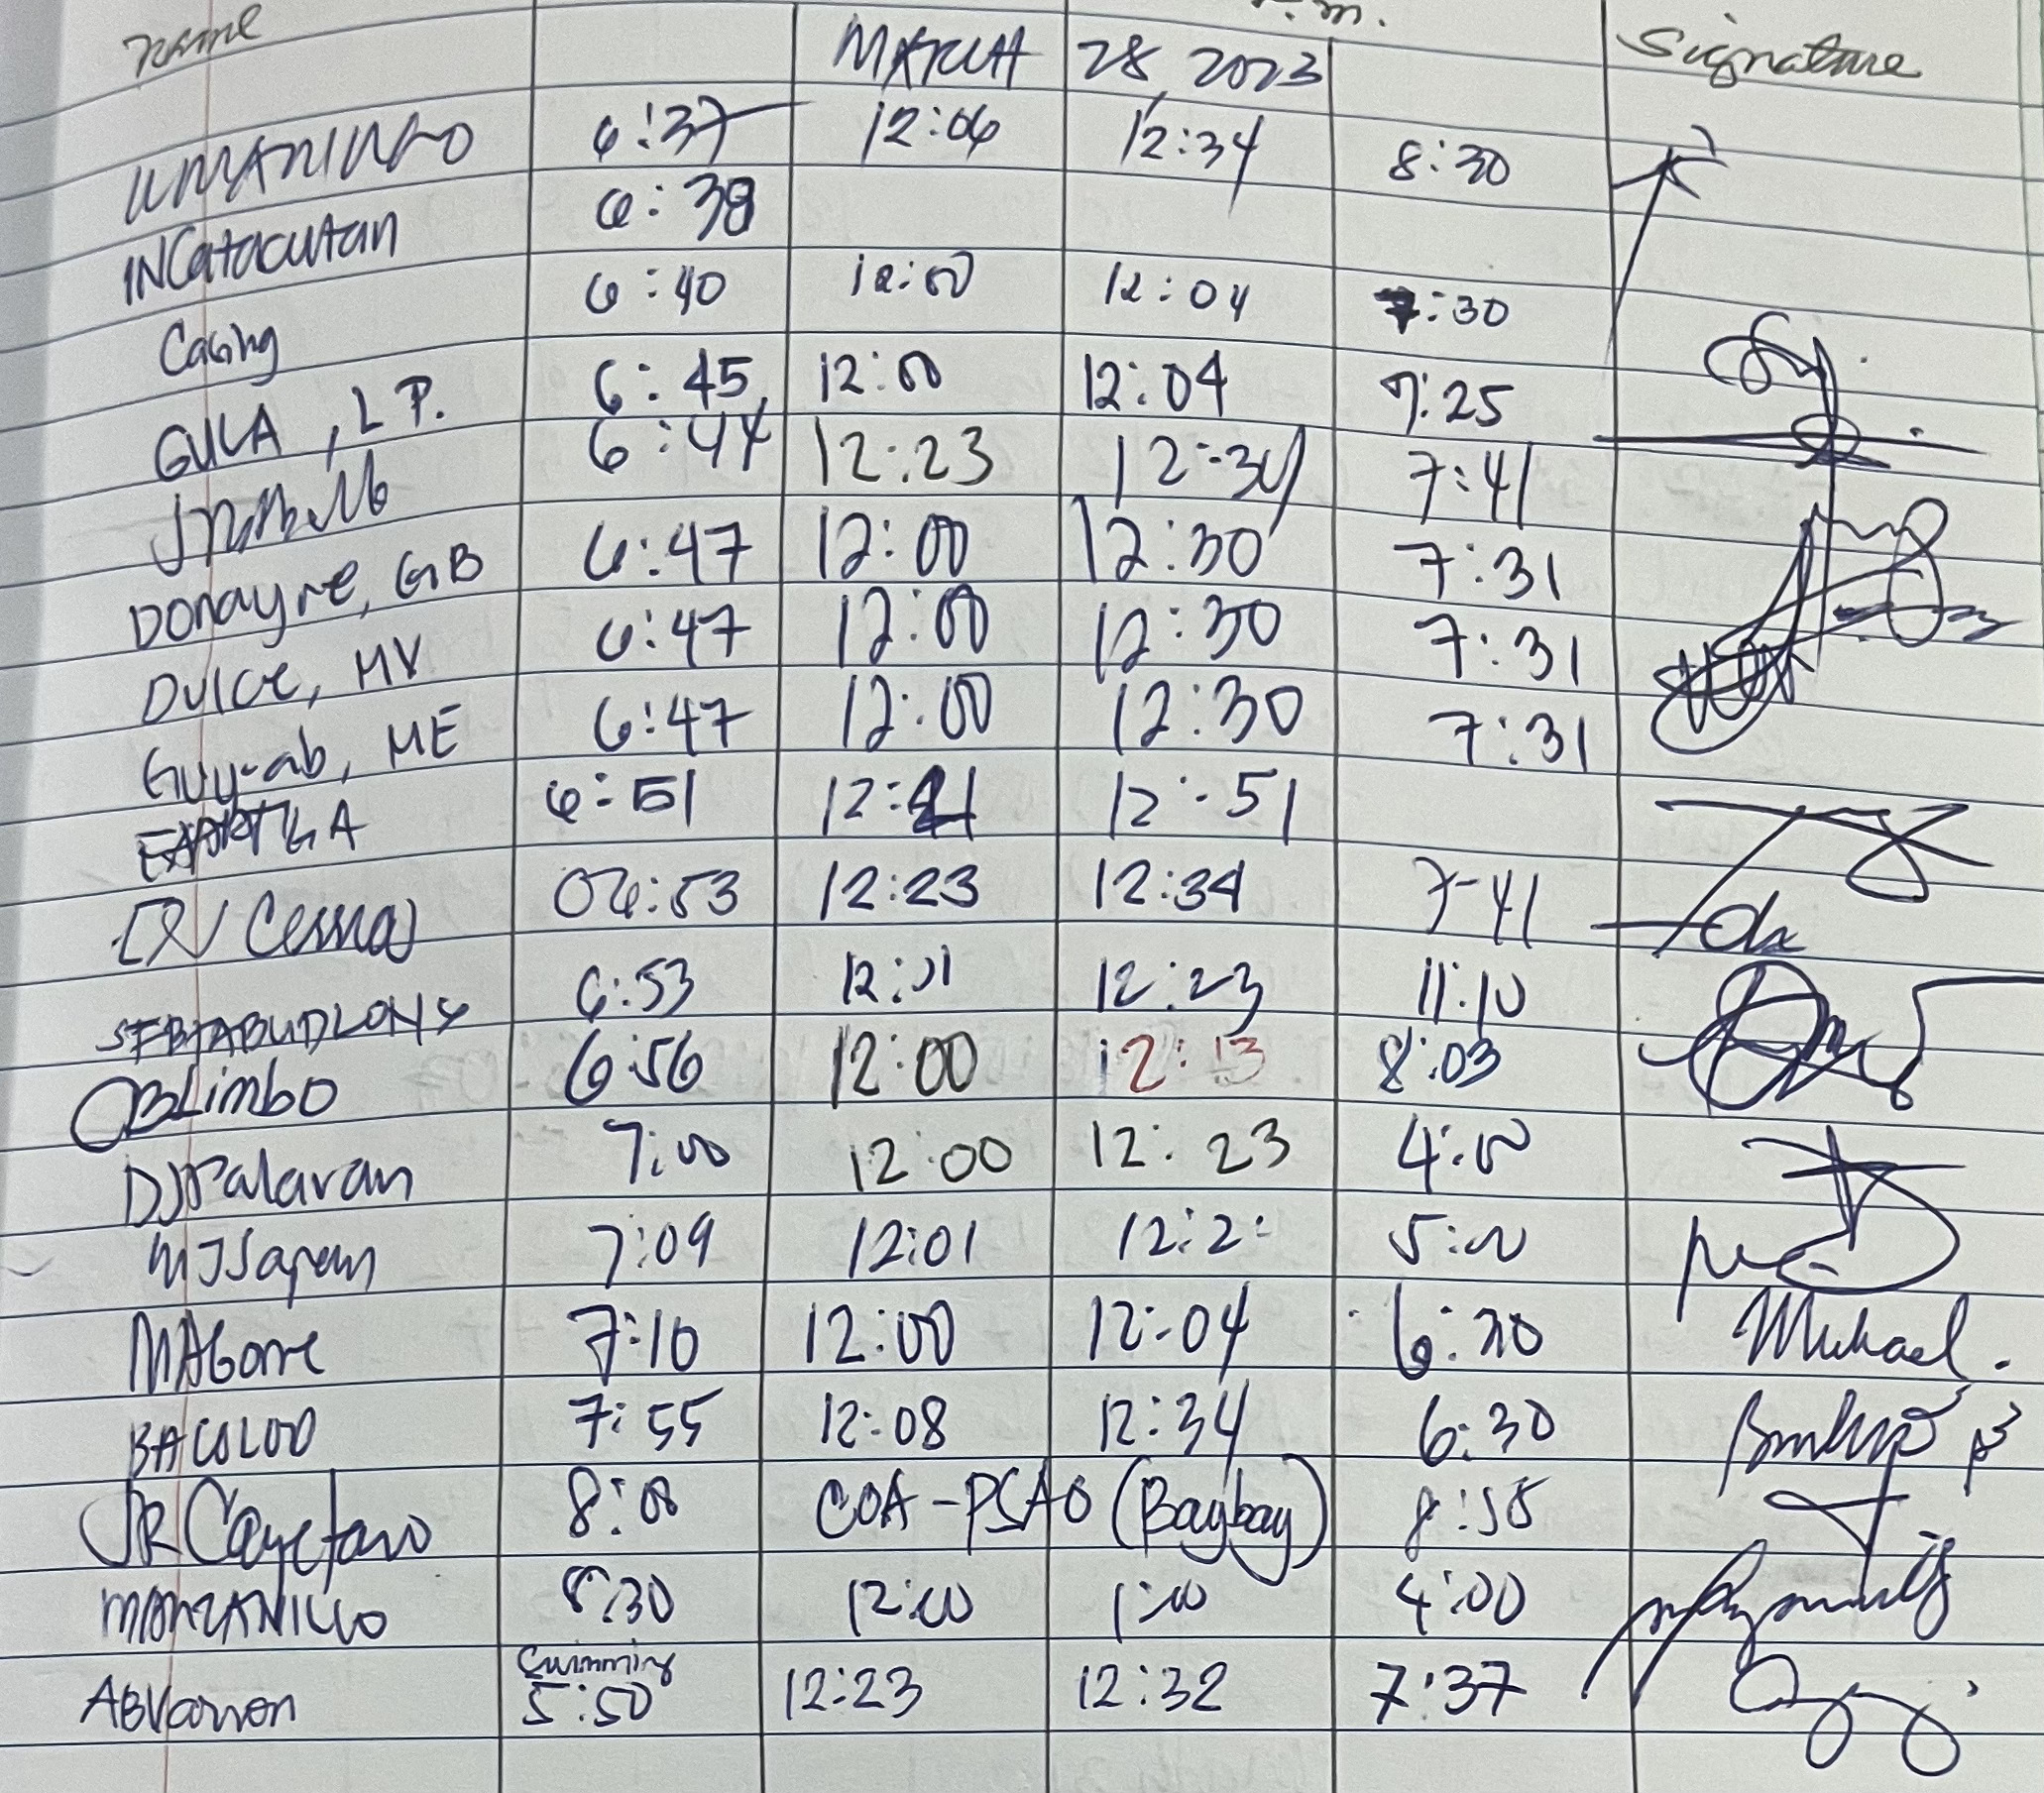 Name Signature
MARCH 28, 2023
UMANINGO 6:37 12:06 12:34 8:30
INCatacutan 6:38
Casing 6:40 12:00 12:04 7:30
GULA, L P. 6:45 12:00 12:04 7:25
6:44 12:23 12:34 7:41
Donayre, GB 6:47 12:00 12:30 7:31
Dulce, MV 6:47 12:00 12:30 7:31
Guy-ab, ME 6:47 12:00 12:30 7:31
6:51 12:21 12:51
06:53 12:23 12:34 7-41
6:53 12:01 12:23 11:10
OBLimbo 6:56 12:00 12:13 8:03
DJPalaran 7:00 12:00 12:23 4:00
MJSapan 7:09 12:01 12:2 5:00
MAGorre 7:10 12:00 12:04 6:30 Michael.
BACOLOD 7:55 12:08 12:34 6:30
JRCayetano 8:00 COA-PSAO (Baybay) 8:55
MANZANILLO 8:30 12:00 1:00 4:00
Swimming
ABVarron 5:50 12:23 12:32 7:37